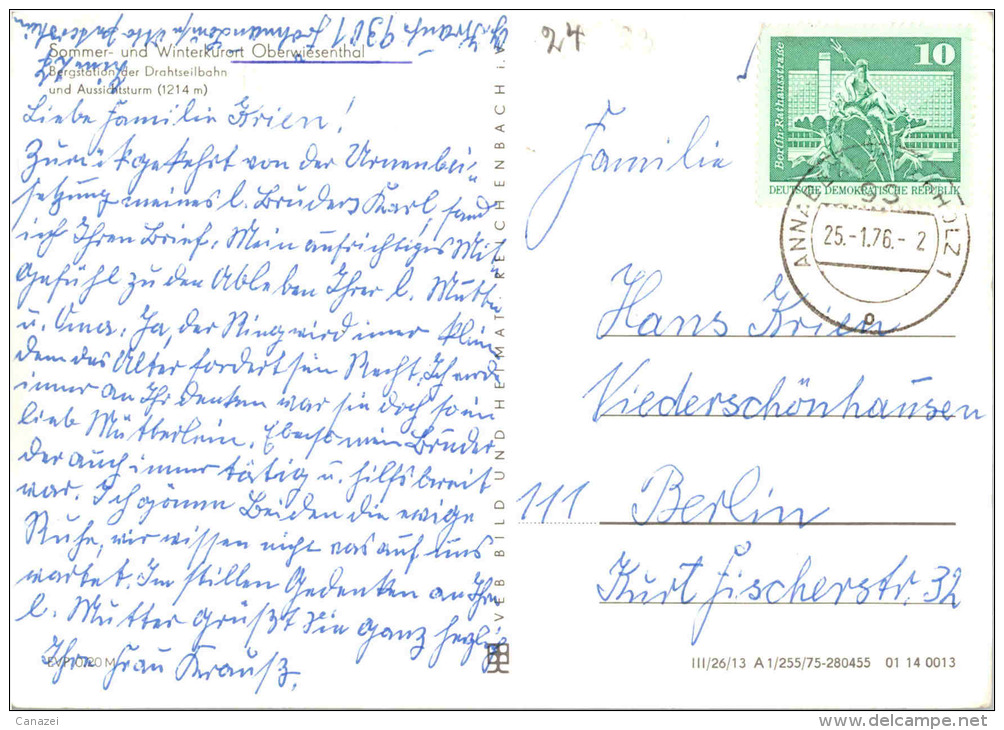 Sommer- und Winterkurort Oberwiesenthal
Bergstation der Drahtseilbahn
und Aussichtsturm (1214 m)
Liebe Familie Krien!
Zurückgekehrt von der Urnenbei-
setzung meines l. Bruders Karl, fand
ich Ihren Brief. Mein aufrichtiges Mit
gefühl zu den Ableben Ihrer l. Mutter
u. Oma. Ja, der Ring wird imer klein
dem das Alter fordert sein Recht. Ich werde
imer an Ihr denken war sie doch so ein
lieb Mütterlein. Ebenso mein Bruder
der auch imer tätig u. hilfsbereit
war. Ich gönne Beiden die ewige
Ruhe, wir wissen nicht was auf uns
wartet. Im stillen Gedenken an Ihre
l. Mutter grüßt Sie ganz herzlich
Ihre Frau Krauß.
EVP 0,20 M
VEB BILD UND HEIMAT REICHENBACH i. V.
24
10
Berlin, Rathausstraße
DEUTSCHE DEMOKRATISCHE REPUBLIK
93
25.-1.76.- 2
Familie
Hans Krien
Niederschönhausen
111 Berlin
Kurt Fischerstr. 32
III/26/13 A 1/255/75-280455 01 14 0013
Canazei
www.delcampe.net